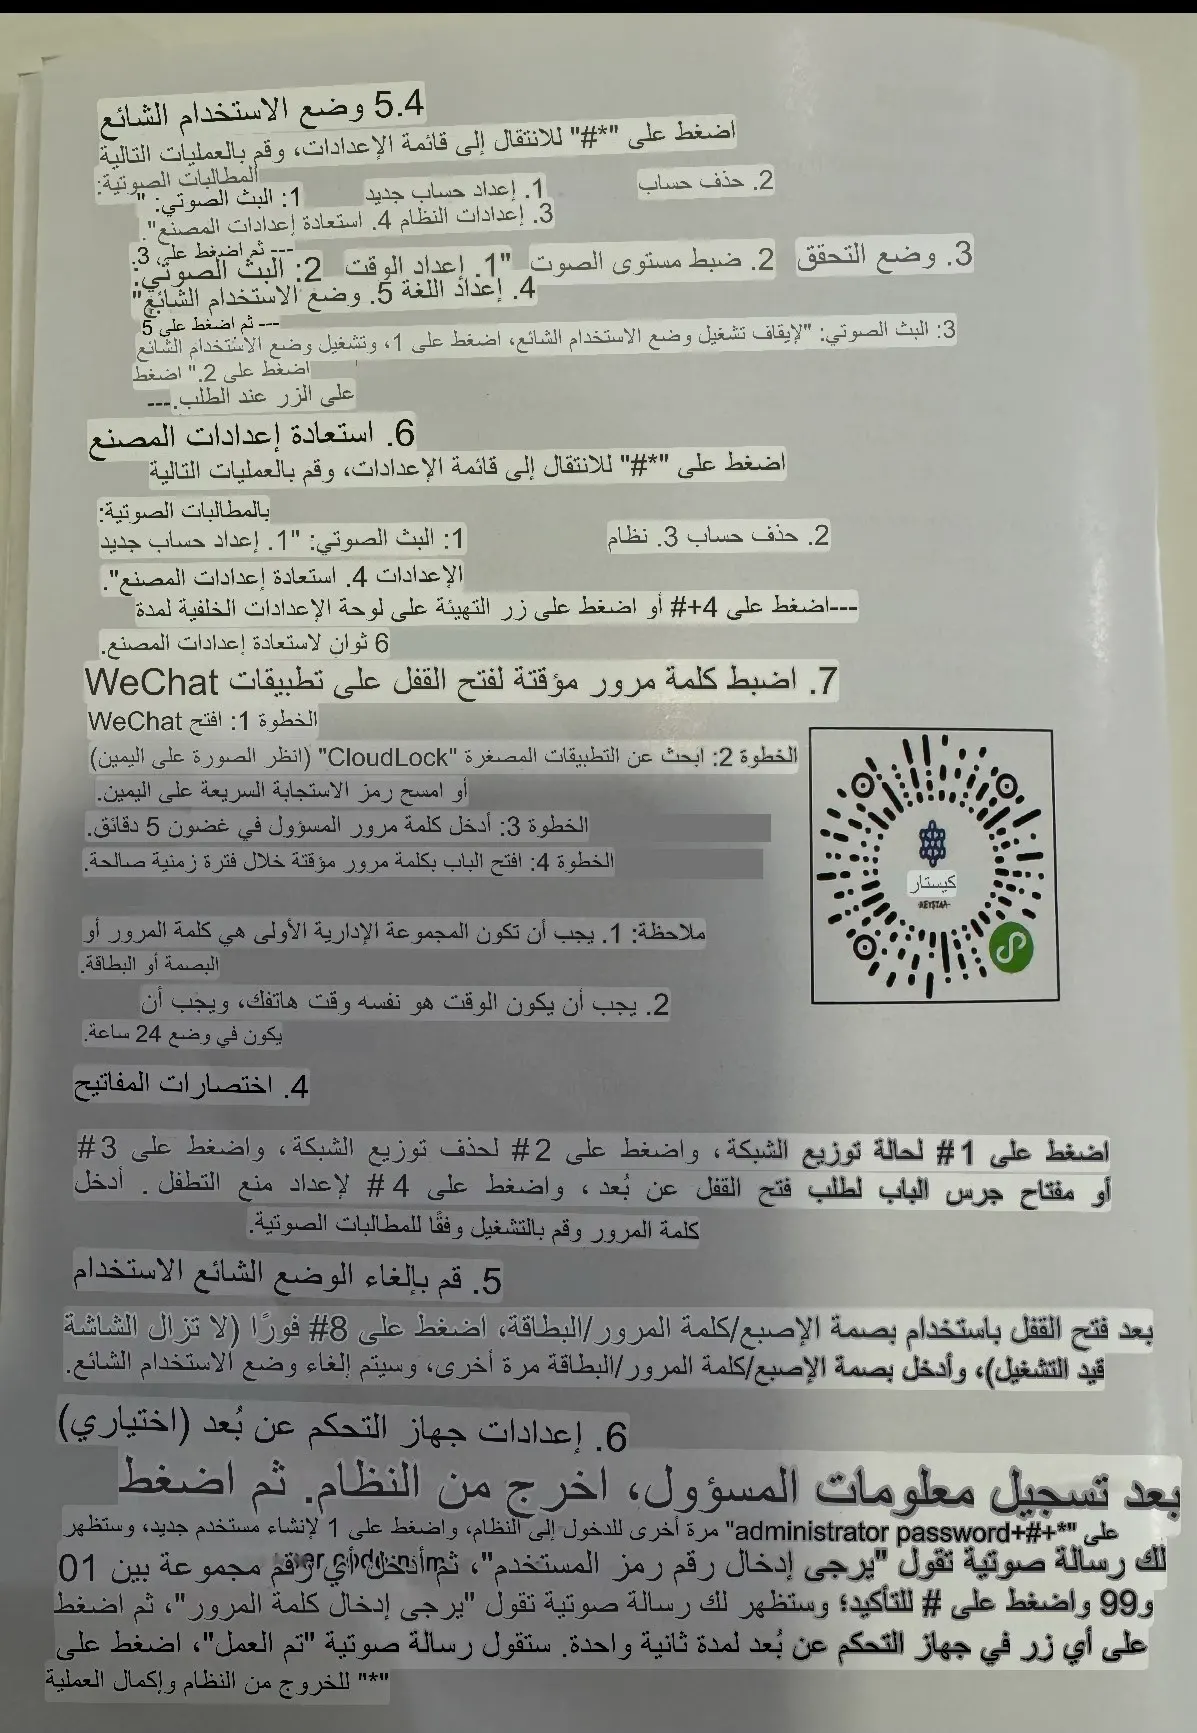 5.4 وضع الاستخدام الشائع
اضغط على "*#" للانتقال إلى قائمة الإعدادات، وقم بالعمليات التالية
المطالبات الصوتية:
1: البث الصوتي: " 1. إعداد حساب جديد 2. حذف حساب
3. إعدادات النظام 4. استعادة إعدادات المصنع".
--- ثم اضغط على 3.
2: البث الصوتي: "1. إعداد الوقت 2. ضبط مستوى الصوت 3. وضع التحقق
4. إعداد اللغة 5. وضع الاستخدام الشائع"
--- ثم اضغط على 5
3: البث الصوتي: "لإيقاف تشغيل وضع الاستخدام الشائع، اضغط على 1، وتشغيل وضع الاستخدام الشائع
اضغط على 2." اضغط
على الزر عند الطلب.---
6. استعادة إعدادات المصنع
اضغط على "*#" للانتقال إلى قائمة الإعدادات، وقم بالعمليات التالية
بالمطالبات الصوتية:
1: البث الصوتي: "1. إعداد حساب جديد 2. حذف حساب 3. نظام
الإعدادات 4. استعادة إعدادات المصنع".
---اضغط على 4+# أو اضغط على زر التهيئة على لوحة الإعدادات الخلفية لمدة
6 ثوانٍ لاستعادة إعدادات المصنع.
7. اضبط كلمة مرور مؤقتة لفتح القفل على تطبيقات WeChat
الخطوة 1: افتح WeChat
الخطوة 2: ابحث عن التطبيقات المصغرة "CloudLock" (انظر الصورة على اليمين)
أو امسح رمز الاستجابة السريعة على اليمين.
الخطوة 3: أدخل كلمة مرور المسؤول في غضون 5 دقائق.
الخطوة 4: افتح الباب بكلمة مرور مؤقتة خلال فترة زمنية صالحة.
كيستار
KEYSTAR
ملاحظة: 1. يجب أن تكون المجموعة الإدارية الأولى هي كلمة المرور أو
البصمة أو البطاقة.
2. يجب أن يكون الوقت هو نفسه وقت هاتفك، ويجب أن
يكون في وضع 24 ساعة.
4. اختصارات المفاتيح
اضغط على 1# لحالة توزيع الشبكة، واضغط على 2# لحذف توزيع الشبكة، واضغط على 3#
أو مفتاح جرس الباب لطلب فتح القفل عن بُعد، واضغط على 4# لإعداد منع التطفل. أدخل
كلمة المرور وقم بالتشغيل وفقًا للمطالبات الصوتية.
5. قم بإلغاء الوضع الشائع الاستخدام
بعد فتح القفل باستخدام بصمة الإصبع/كلمة المرور/البطاقة، اضغط على 8# فورًا (لا تزال الشاشة
قيد التشغيل)، وأدخل بصمة الإصبع/كلمة المرور/البطاقة مرة أخرى، وسيتم إلغاء وضع الاستخدام الشائع.
6. إعدادات جهاز التحكم عن بُعد (اختياري)
بعد تسجيل معلومات المسؤول، اخرج من النظام. ثم اضغط
على "*+#+administrator password" مرة أخرى للدخول إلى النظام، واضغط على 1 لإنشاء مستخدم جديد، وستظهر
لك رسالة صوتية تقول "يرجى إدخال رقم رمز المستخدم"، ثم أدخل أي رقم مجموعة بين 01
و99 واضغط على # للتأكيد؛ وستظهر لك رسالة صوتية تقول "يرجى إدخال كلمة المرور"، ثم اضغط
على أي زر في جهاز التحكم عن بُعد لمدة ثانية واحدة. ستقول رسالة صوتية "تم العمل"، اضغط على
"*" للخروج من النظام وإكمال العملية